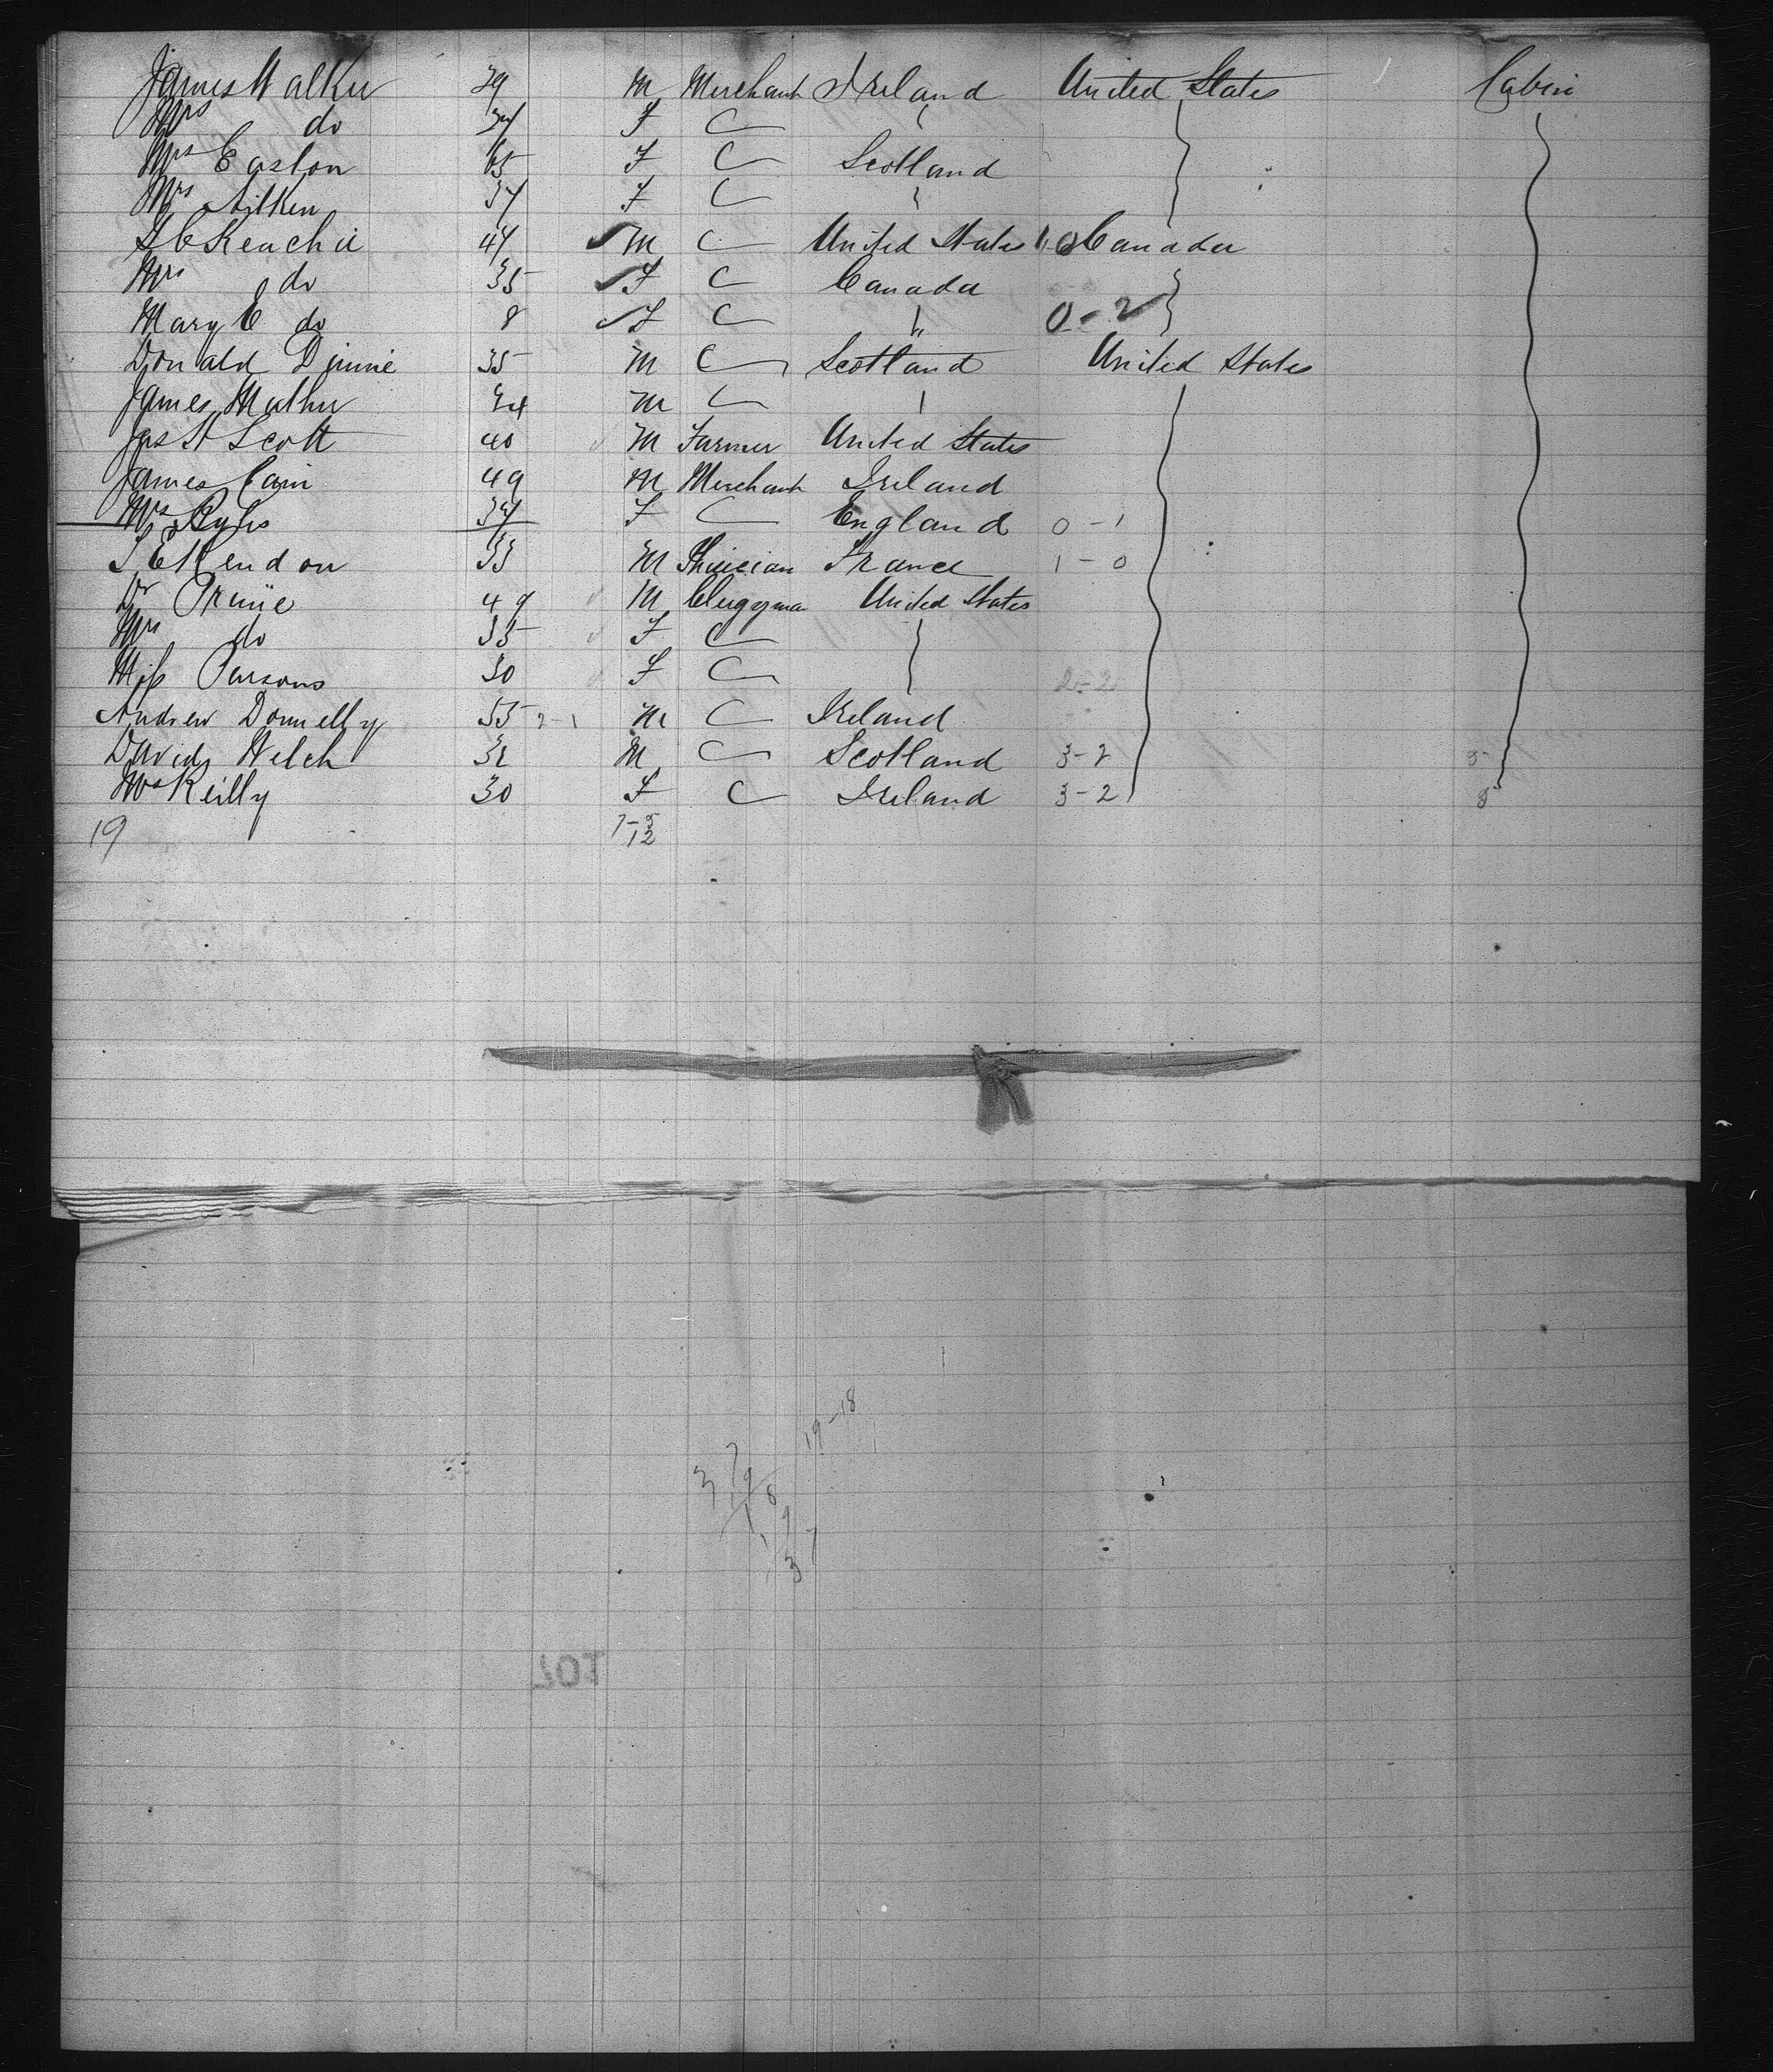 James Walker 39 M Merchant Ireland United States Cabin
Mrs do 34 F
Mrs Easton 65 F Scotland
Mrs Aitken 34 F "
47 M United States 1-0 Canada
Mrs do 35 F Canada
Mary E do 8 F " 0-2
Donald Dinnie 35 M Scotland United States
James Mather 34 M
Jas Scott 40 M Farmer United States
James Cain 49 M Merchant Ireland
Mrs 34 F England 0-1
Rendon 33 M France 1-0
Dr Prime 49 M United States
Mrs do 55 F
Miss Parsons 30 F 2-2
Andrew Donnelly 55 2-1 M Ireland
David Welch 32 M Scotland 3-2 5
Mrs Reilly 30 F Ireland 3-2 8
19 7-5
12
19-18
37
19
18
19
37
107